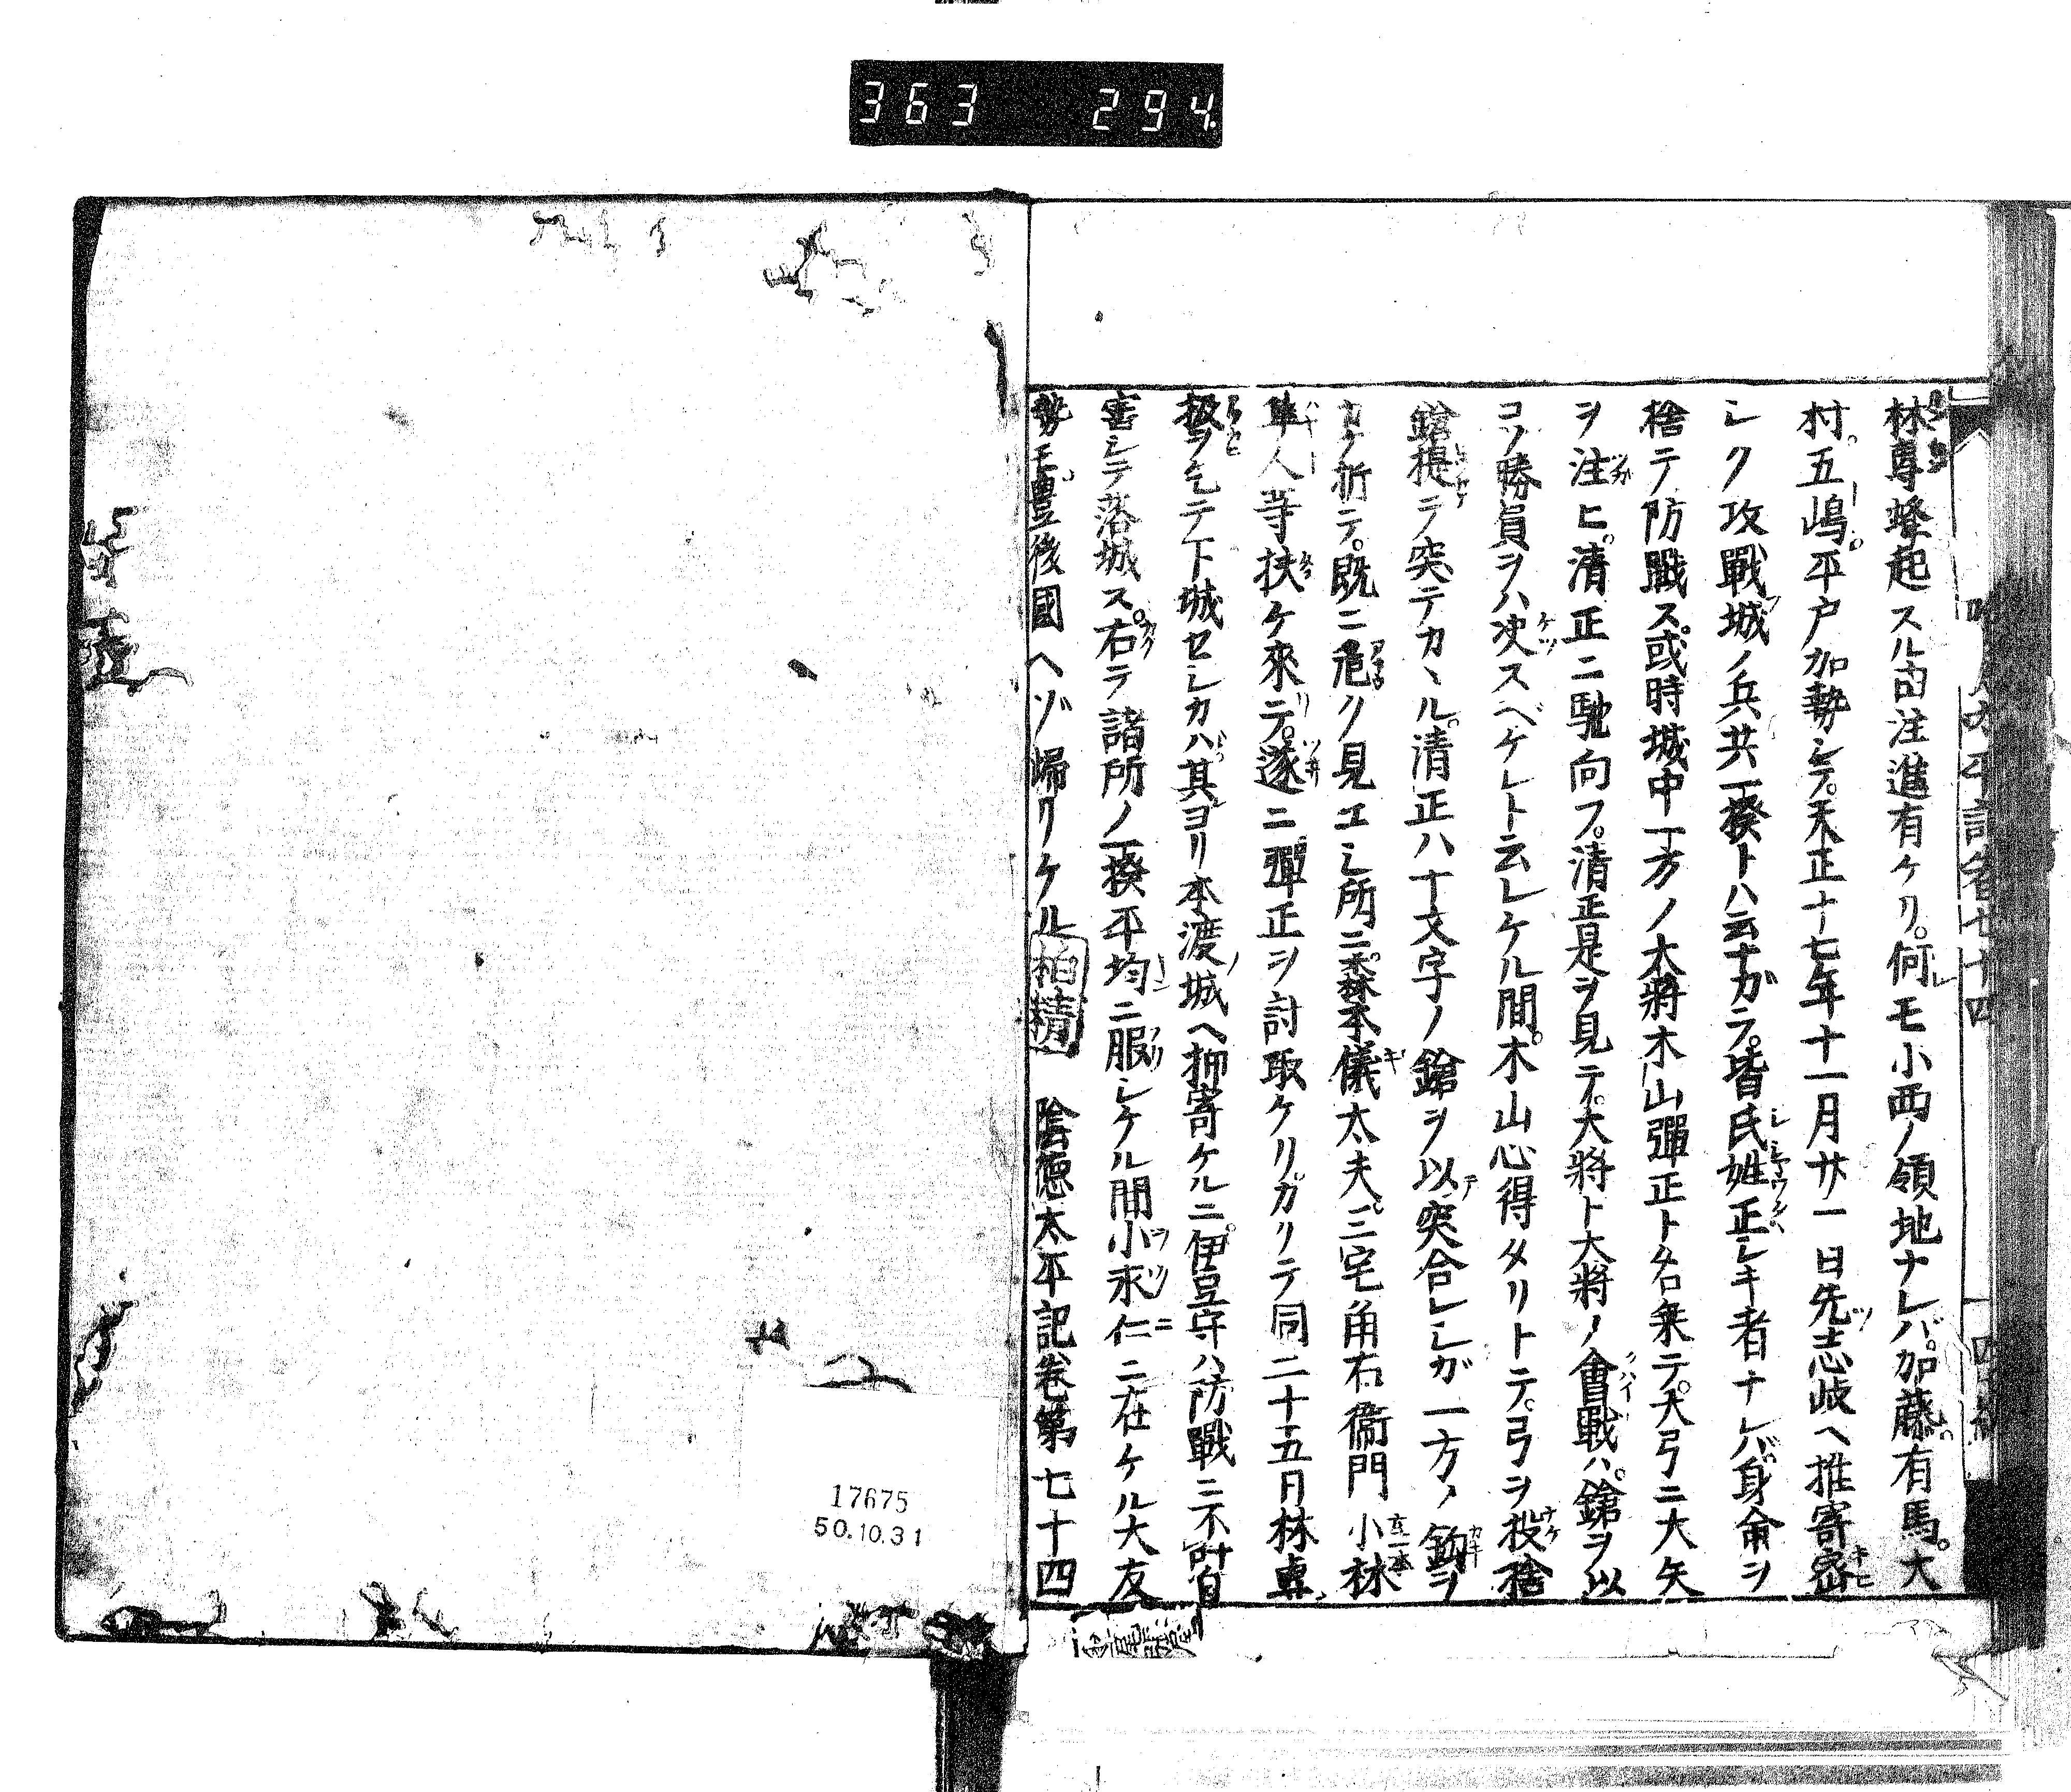 363 294
林專蜂起スル由注進有ケリ。何レモ小西ノ領地ナレバ。加藤。有馬。大
村。五嶋。平戸加勢シテ。天正十七年十一月廿一日先ツ志岐ヘ推寄密
シク攻戰フ城ノ兵共一揆トハ云ナガラ。皆氏姓正シキ者ナレバ身命ヲ
捨テ防戰ス。或時城中一方ノ大將木山彈正ト名乗テ。大弓ニ大矢
ヲ注ヒ。清正ニ馳向フ。清正是ヲ見テ。大將ト大將ノ會戰ハ。鎗ヲ以
コソ勝負ヲハ决スベケレト云レケル間。木山心得タリトテ。弓ヲ投捨
鎗提テ突テカヽル。清正ハ十文字ノ鎗ヲ以テ突合レシガ一方ノ鉤ヲ
カケ折テ。既ニ危ク見エシ所ニ。森本儀太夫。三宅角右衞門小林
隼人等扶ケ來リテ。遂ニ彈正ヲ討取ケリ。カリテ同二十五日林專
扱ヲ乞テ下城セシカハ其ヨリ本渡ノ城ヘ押寄ケルニ。伊豆守ハ防戰ニ不叶自
害シテ落城ス。右テ諸所ノ一揆平均ニ服シケル間小永仁ニ在ケル大友
勢モ。豊後國ヘゾ歸リケル
柏精
陰德太平記卷第七十四
17675
50.10.31